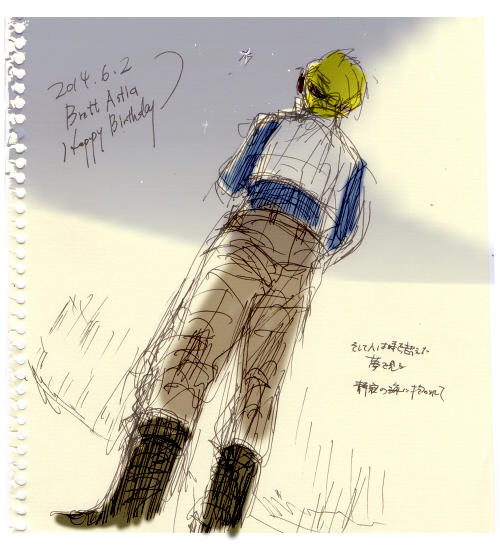 2014.6.2
Brett Asta
Happy Birthday
そして人は時を超えた
夢を見る
静寂の海に抱かれて